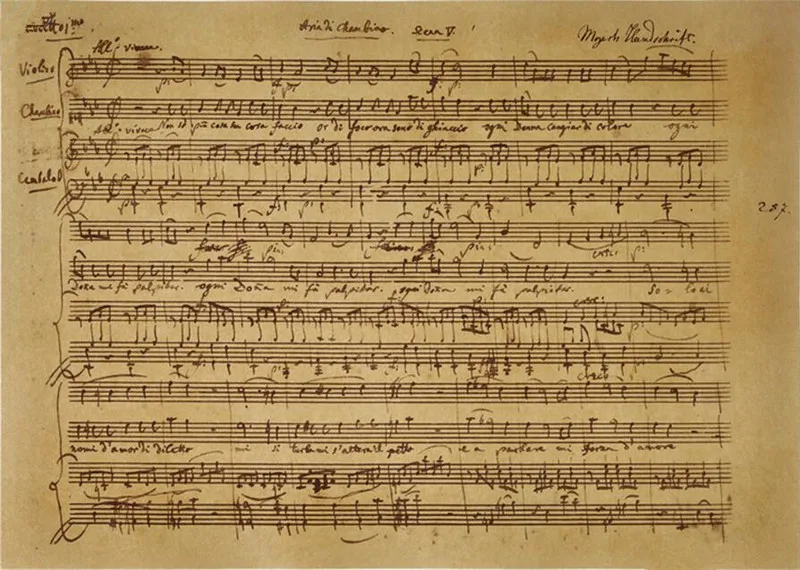 Atto 1mo Aria di Cherubino. Scena V. Mozarts Handschrift.
All.o vivace.
Violino
Cherubino
Non so più cosa son cosa faccio or di foco ora sono di ghiaccio ogni Donna cangiar di colore ogni
All.o vivace
Cembalo
287.
Donna mi fà palpitar. ogni Donna mi fà palpitar. ogni donna mi fà palpitar. So = lo ai
nomi d'amor di diletto mi si turba mi s'altera il petto e a parlare mi sforza d'amore